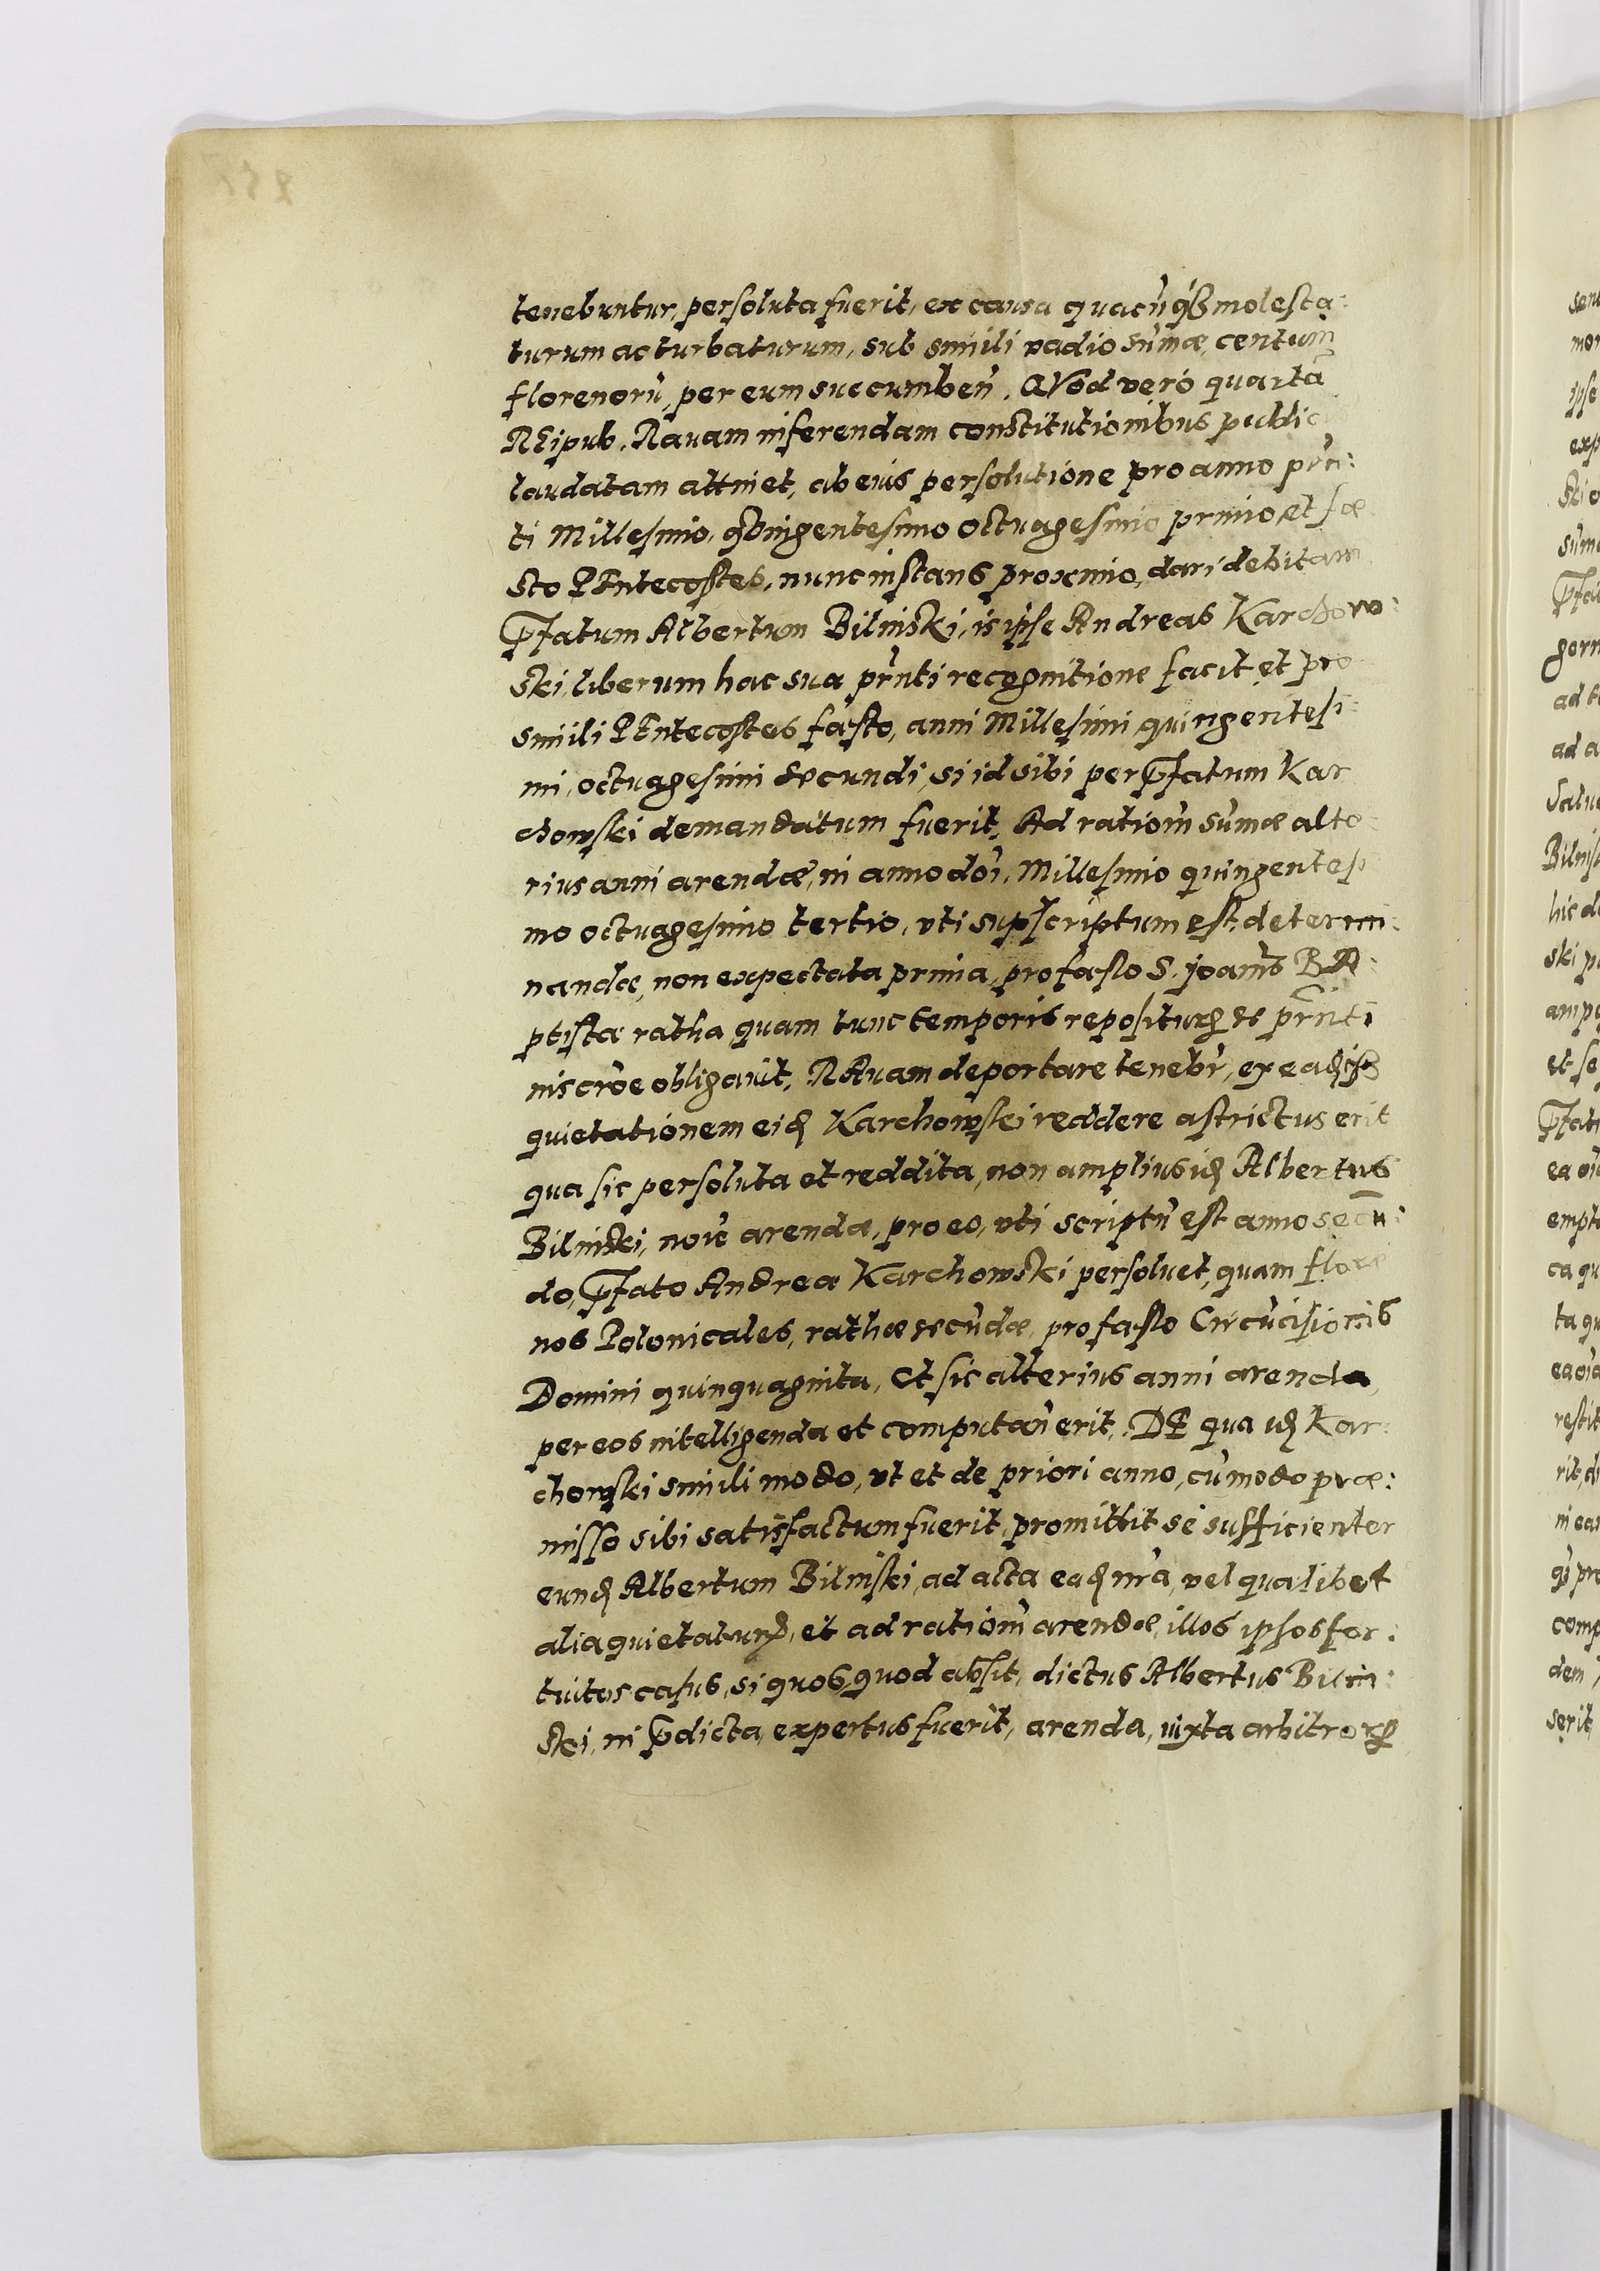 tenebuntur, persoluta fuerit, ex causa quacūqȝ molesta:
turum ac turbaturum, sub simili vadio sūmæ, centum
florenorū, per eum succumben̄. QVod vero quartā
REipub. Ravam inferendam constitutionibus public
laudatam attinet, ab eius persolutione pro anno prn̄:
ti Millesimo, qvingentesimo octuagesimo primo, et fæ
sto PEntecostes, nunc instans proximo, dari debitam
Pfatum Albertum Bilinski, is ipse Andreas Karchow:
ski, liberum hac sua prn̄ti recognitione facit, et pro
simili PEntecostes fæsto, anni Millesimi quingentesi:
mi, octuagesimi secundi, si id sibi per Pfatum Kar
chowski demandatum fuerit, Ad ration̄ sūmæ alte:
rius anni arendæ, in anno dn̄i, Millesimo quingentesi
mo octuagesimo tertio, vti supscriptum est, determi:
nandæ, non expectata prima, pro fæsto S. joan̄is BA:
ptistæ ratha, quam tunc temporis repositurꝝ se prn̄ti
inscrōe obligavit, RAvam deportare tenebr̄, ex eaqȝ
quietationem eiđ Karchowski reddere astrictus erit
qua sic persoluta et reddita, non amplius iđ Albertus
Bilinski, noīe arendæ, pro eo, vti scriptū est anno secū:
do, Pfato Andreæ Karchowski persoluet, quam flore
nos Polonicales, rathæ secūdæ, pro fæsto Circūcisionis
Domini quinquaginta, Et sic alterius anni arenda,
per eos intelligenda et computan̄ erit, DE qua iđ Kar:
chowski simili modo, vt et de priori anno, cū modo præ:
misso sibi satisfactum fuerit, promittit se sufficienter
eunđ Albertum Bilinski, ad acta eađ nr̄a, vel qualibet
alia quietaturꝝ, et ad ration̄ arendæ, illos ipsos for:
tuitos casus, si quos, quod absit, dictus Albertus Bilin:
ski, in Pdicta, expertus fuerit, arenda, iuxta arbitrorꝝ